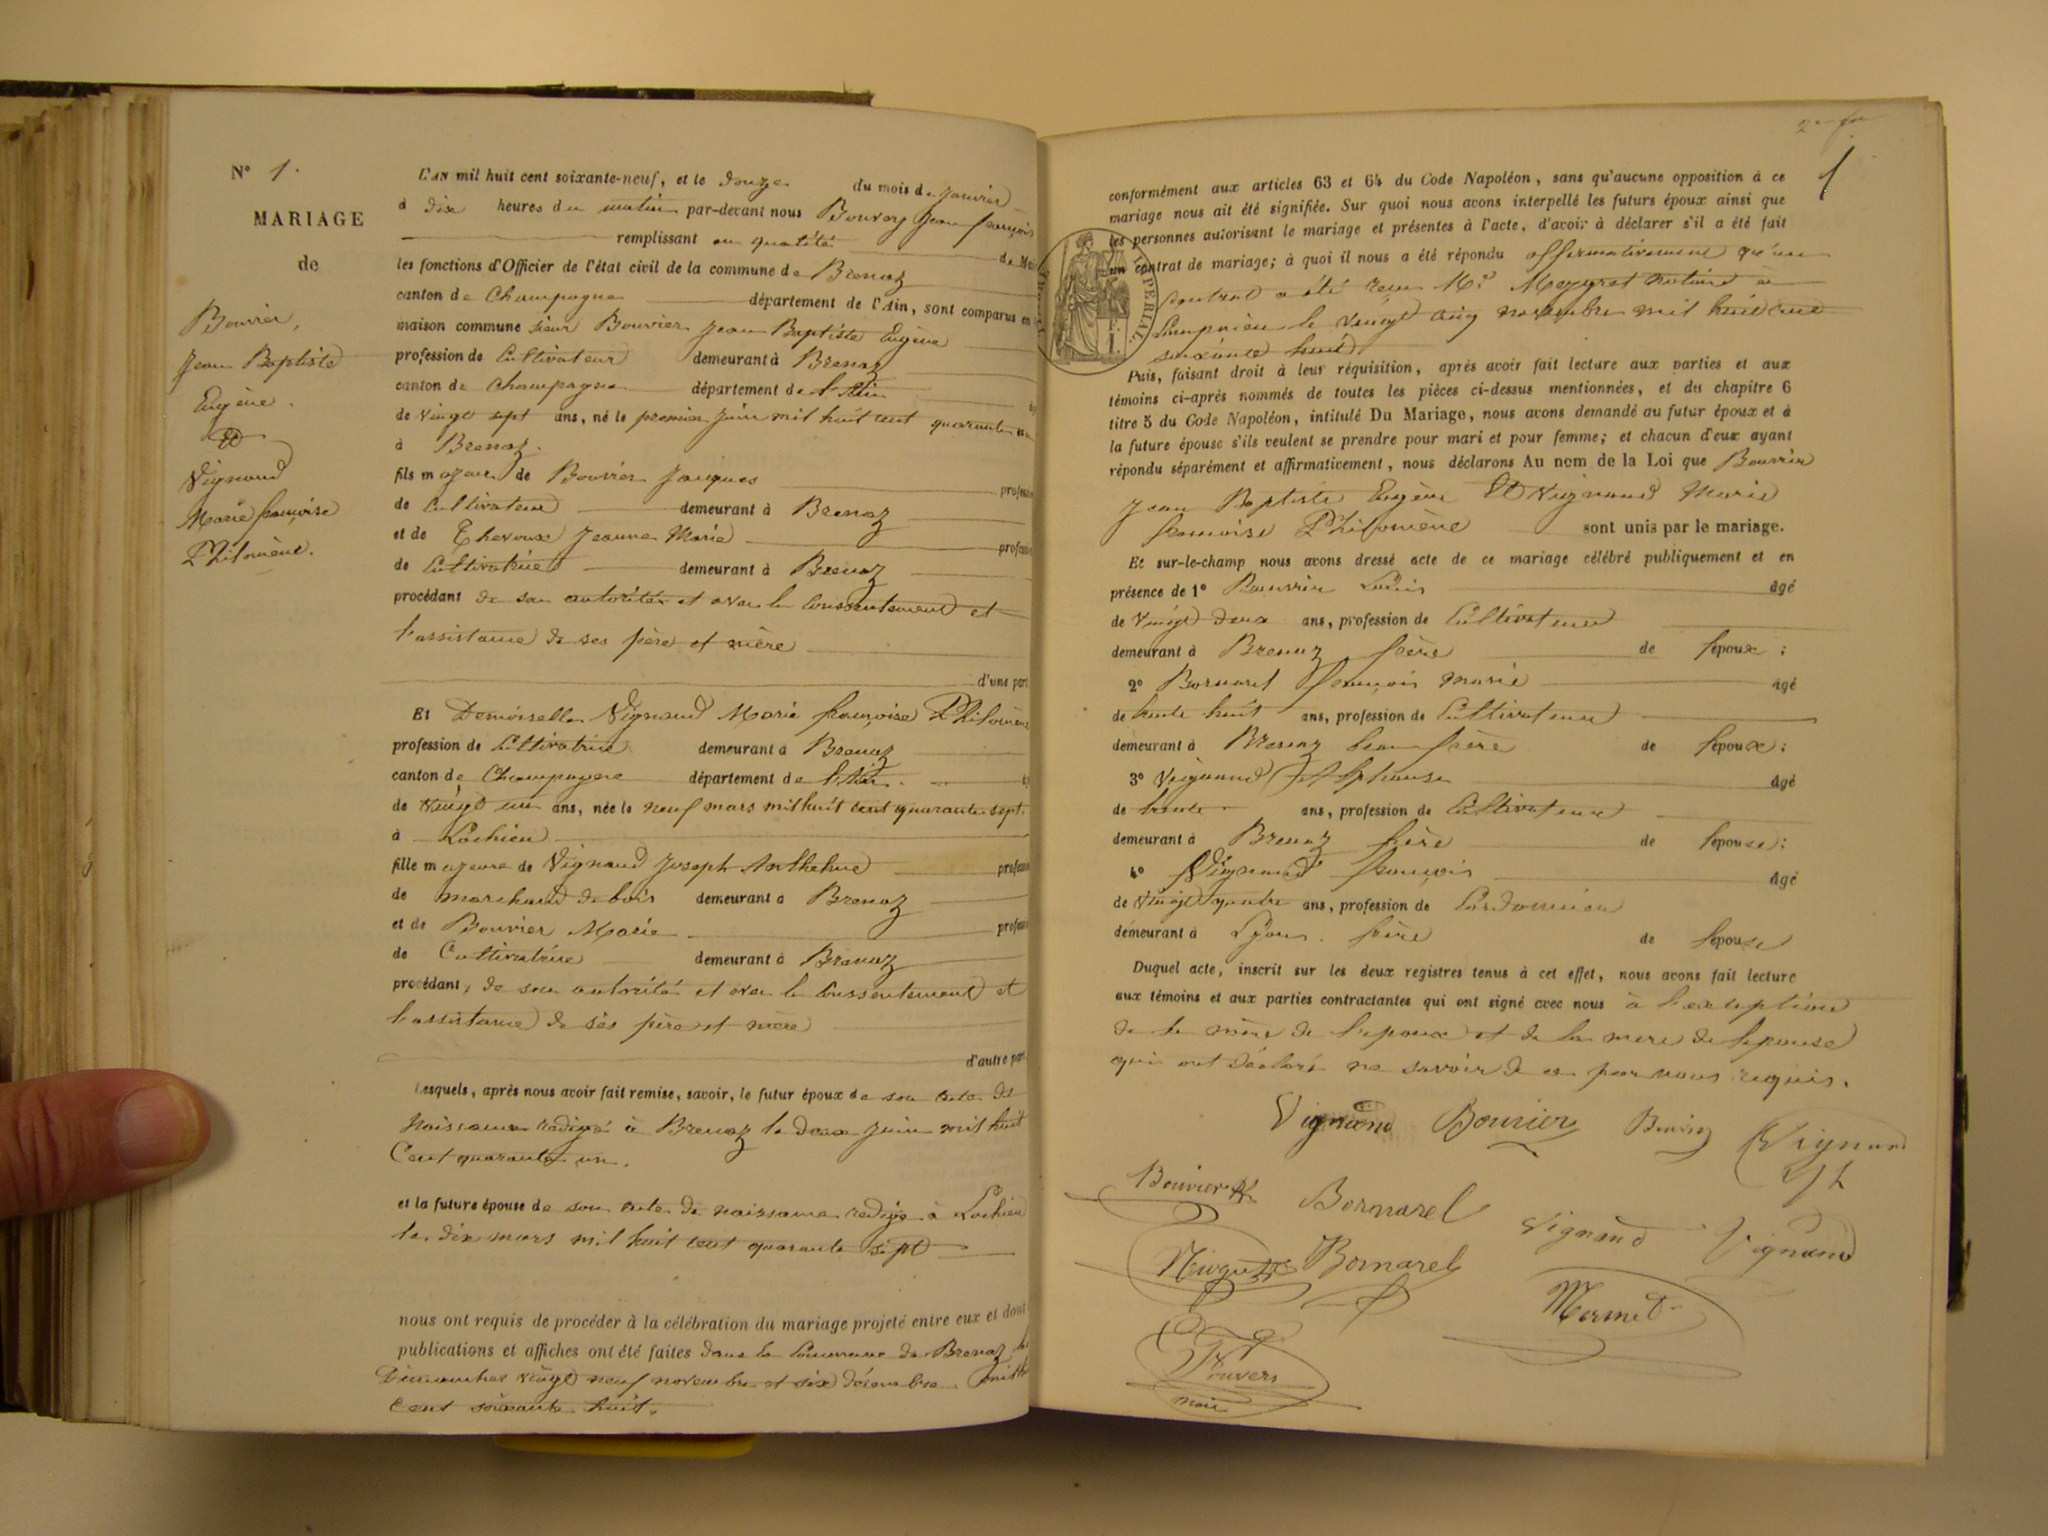 N° 1.
MARIAGE
de
Bouvier,
Jean Baptiste
Eugène.
Et
Vignand
Marie françoise
Philomène.
L'AN mil huit cent soixante-neuf, et le douze du mois de Janvier
à dix heures du matin par-devant nous Bouvery Jean françois
remplissant en qualité de
les fonctions d'Officier de l'état civil de la commune de Brenaz
canton de Champagne département de l'Ain, sont comparus en
maison commune sieur Bouvier Jean Baptiste Eugène
profession de Cultivateur demeurant à Brenaz
canton de Champagne département de l'Ain
de vingt sept ans, né le premier Juin mil huit cent quarante un
à Brenaz.
fils majeur de Bouvier Jacques profess
de Cultivateur demeurant à Brenaz
et de Chevoux Jeanne Marie profess
de Cultivatrice demeurant à Brenaz
procédant de son autorité et avec le consentement et
l'assistance de ses père et mère
d'une part
Et Demoiselle Vignand Marie françoise Philomène
profession de Cultivatrice demeurant à Brenaz
canton de Champagne département de l'Ain.
de vingt un ans, née le neuf mars mil huit cent quarante sept.
à Lochieu
fille majeure de Vignand Joseph Anthelme profess
de marchand de bois demeurant à Brenaz
et de Bouvier Marie profess
de Cultivatrice demeurant à Brenaz
procédant, de son autorité et avec le consentement et
l'assistance de ses père et mère
d'autre part
Lesquels, après nous avoir fait remise, savoir, le futur époux de son acte de
Naissance redigé à Brenaz le deux Juin mil huit
Cent quarante un.
et la future épouse de son acte de naissance redigé à Lochieu
le dix mars mil huit cent quarante sept
nous ont requis de procéder à la célébration du mariage projeté entre eux et dont
publications et affiches ont été faites dans la Commune de Brenaz les
Dimanches vingt neuf novembre et six décembre mil huit
Cent soixante huit.
1
IMPERIAL
conformément aux articles 63 et 64 du Code Napoléon, sans qu'aucune opposition à ce
mariage nous ait été signifiée. Sur quoi nous avons interpellé les futurs époux ainsi que
les personnes autorisant le mariage et présentes à l'acte, d'avoir à déclarer s'il a été fait
un contrat de mariage; à quoi il nous a été répondu affirmativement qu'un
Contrat a été reçu Me Meygret Notaire à
Songieu le vingt cinq novembre mil huit cent
soixante huit
Puis, faisant droit à leur réquisition, après avoir fait lecture aux parties et aux
témoins ci-après nommés de toutes les pièces ci-dessus mentionnées, et du chapitre 6
titre 5 du Code Napoléon, intitulé Du Mariage, nous avons demandé au futur époux et à
la future épouse s'ils veulent se prendre pour mari et pour femme; et chacun d'eux ayant
répondu séparément et affirmativement, nous déclarons Au nom de la Loi que Bouvier
Jean Baptiste Eugène Et Vignand Marie
françoise Philomène sont unis par le mariage.
Et sur-le-champ nous avons dressé acte de ce mariage célébré publiquement et en
présence de 1° Bouvier Louis âgé
de vingt deux ans, profession de Cultivateur
demeurant à Brenaz frère de l'époux;
2° Bornarel françois marie âgé
de trente huit ans, profession de Cultivateur
demeurant à Brenaz beau frère de l'époux;
3° Vignand Alphonse âgé
de trente ans, profession de Cultivateur
demeurant à Brenaz frère de l'épouse;
4° Vignand françois âgé
de vingt quatre ans, profession de Cordonnier
demeurant à Lyon. frère de l'épouse
Duquel acte, inscrit sur les deux registres tenus à cet effet, nous avons fait lecture
aux témoins et aux parties contractantes qui ont signé avec nous à l'exception
de la mère de l'epoux et de la mere de l'epouse
qui ont déclaré ne savoir de ce par nous requis.
Vignand Bouvier Bouvier Vignand
Bouvier Bornarel Vignand Vignand
Bornarel Mermet
maire